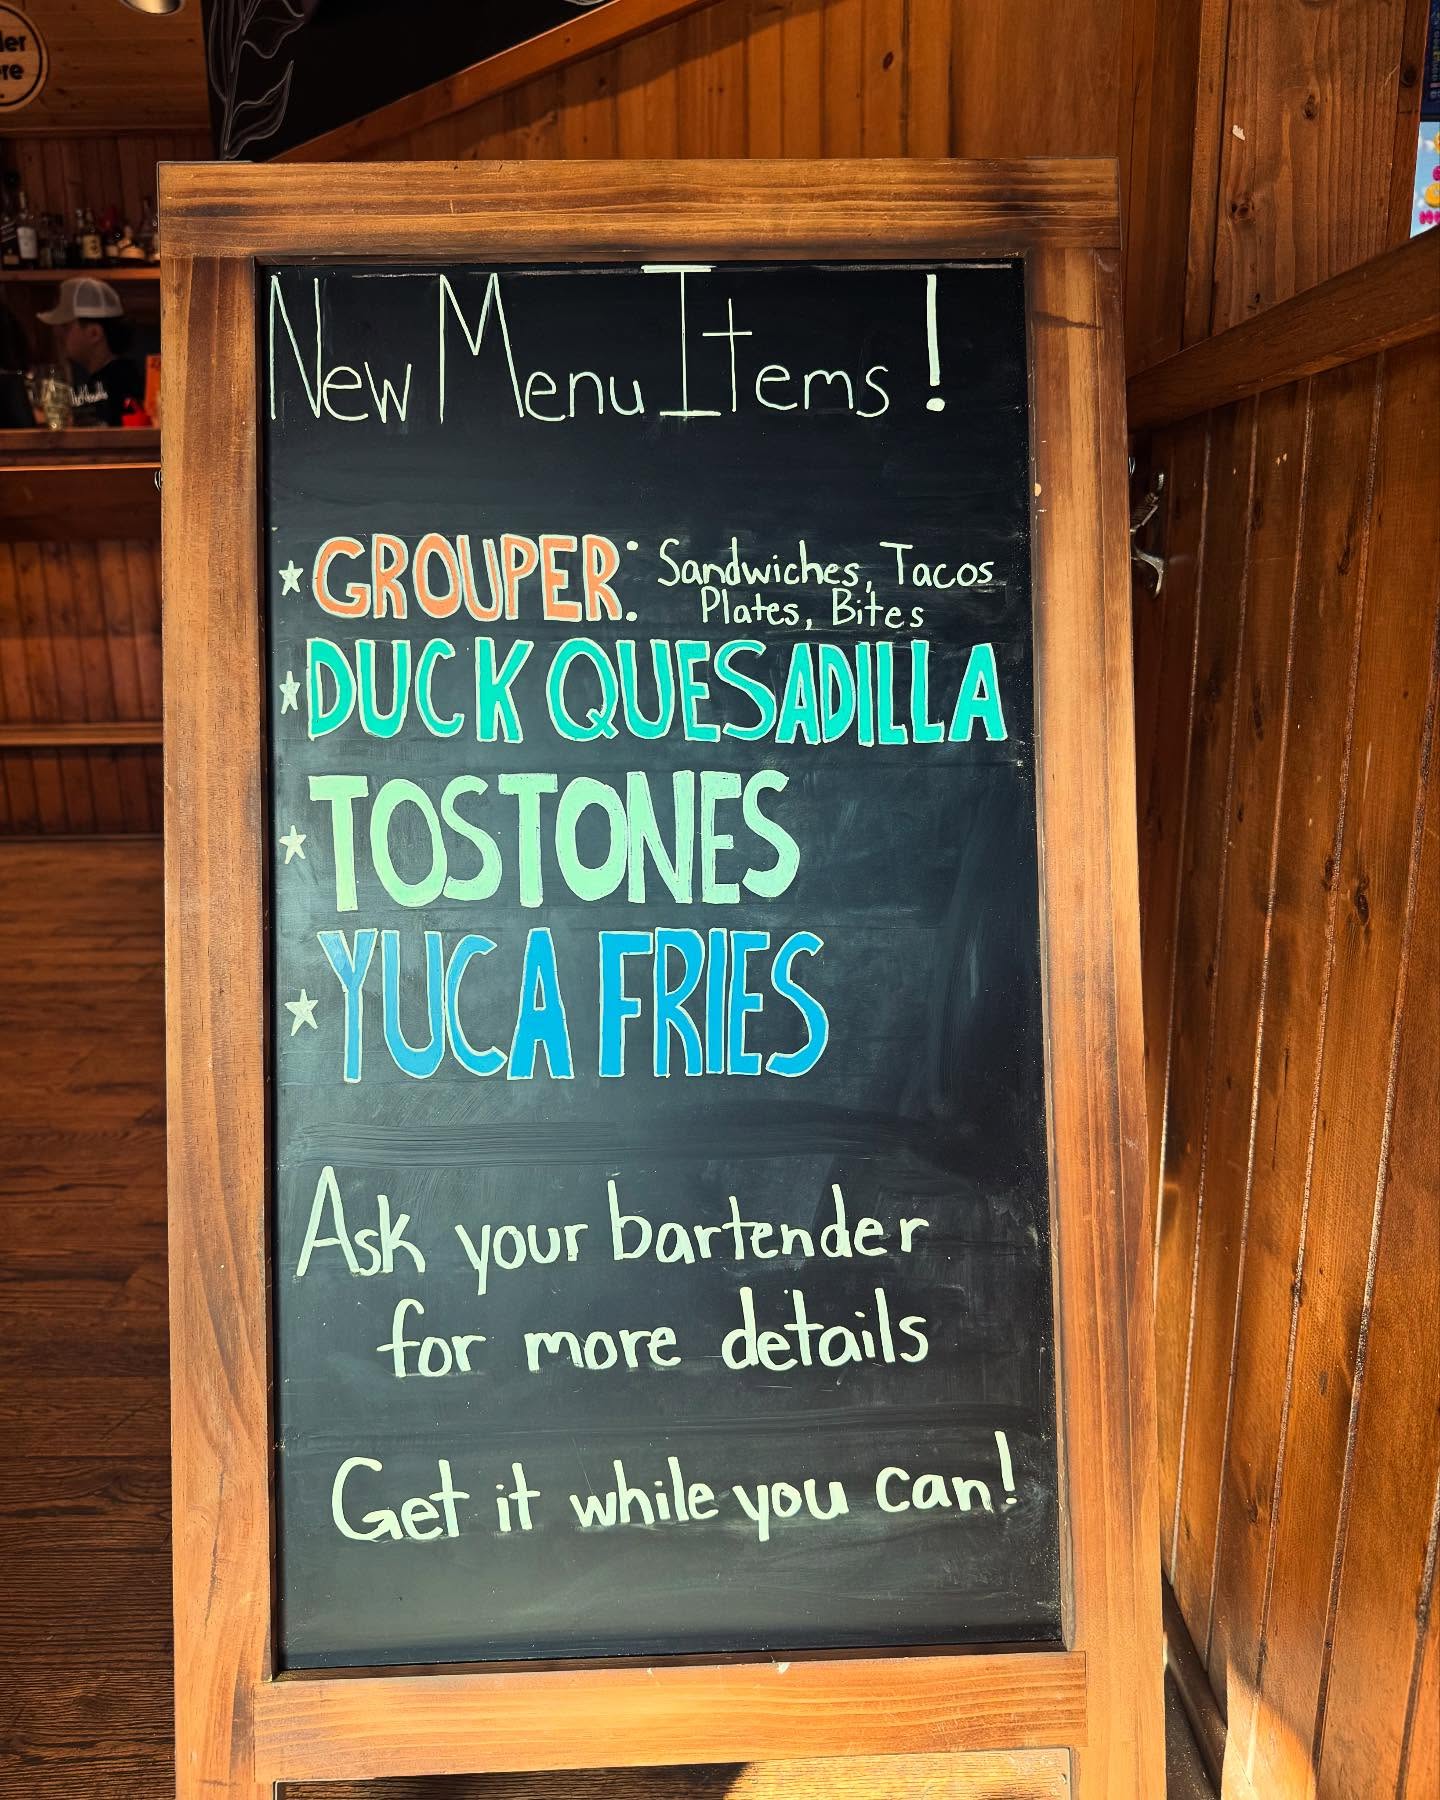 New Menu Items!
GROUPER: Sandwiches, Tacos
Plates, Bites
DUCK QUESADILLA
TOSTONES
YUCA FRIES
Ask your bartender
for more details
Get it while you can!